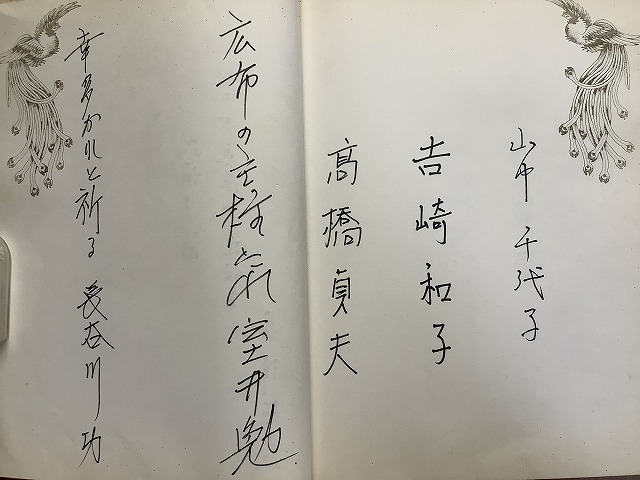 山中千代子
吉崎和子
髙橋貞夫
広布の主柱たれ 室井勉
幸多かれと祈る 長谷川功